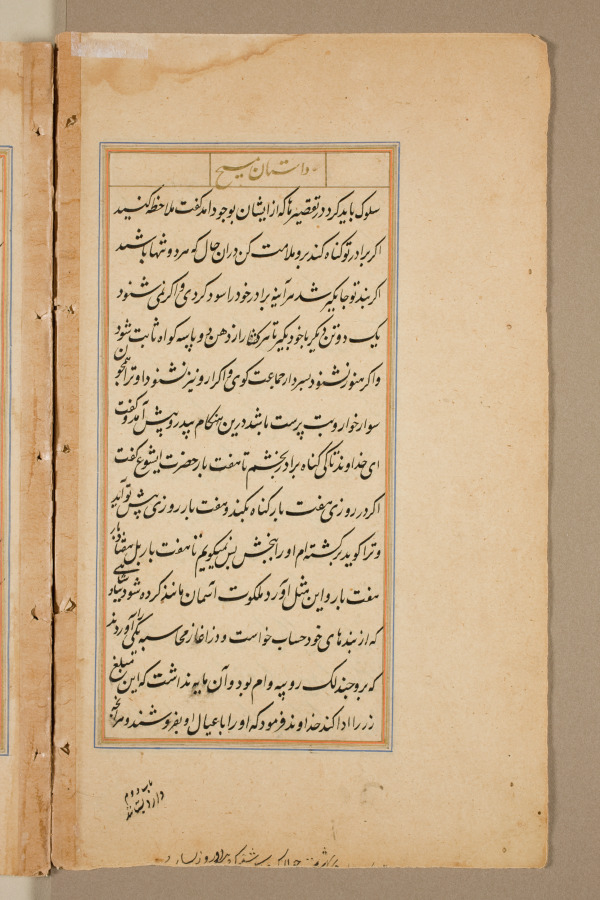 داستان مسیح
سلوک باید کرد در تقصیرها که از ایشان بوجود آمد گفت ملاحظه کنید
اگر برادر تو گناه کند برو ملامت کن دران حال که هر دو تنها باشید
اگر بند تو جایگیر شد هرآینه برادر خود را سود کردی و اگر نمی شنود
یک دو تن دیگر با خود بگیر تا هر گفتار از دهن دو یا سه گواه ثابت شود
و اگر هنوز نشنود بسردار جماعت گوی و اگر او نیز نشنود او ترا همچون
سوارخوار و بت پرست باشد درین هنگام پیدرو پیش آمد و گفت
ای خداوند تا کی گناه برادر بخشم تا هفت بار حضرت ایشوع گفت
اگر در روزی هفت بار گناه بکند و هفت بار روزی پیش تو آید
و ترا گوید برگشته ام او را ببخش بس نمیگویم تا هفت بار بل هفتاد بار
هفت بار و این مثل آورد ملکوت آسمان مانند کرده شود بپادشاهی
که از بندهای خود حساب خواست و در آغاز محاسبه یکی را آوردند
که برو چند لک روپیه وام بود و آن مایه نداشت که این مبلغ
زر را ادا کند خداوند فرمود که او را با عیال او بفروشند و هرآنچه
باب دوم
دارد بستانند